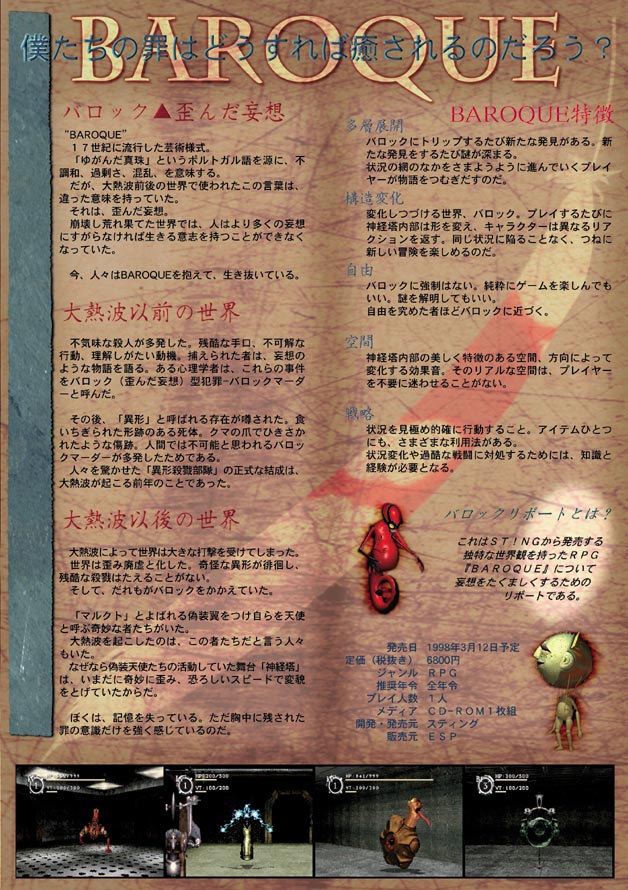 BAROQUE
僕たちの罪はどうすれば癒されるのだろう？
バロック▲歪んだ妄想
“BAROQUE”
１７世紀に流行した芸術様式。
「ゆがんだ真珠」というポルトガル語を源に、不
調和、過剰さ、混乱、を意味する。
だが、大熱波前後の世界で使われたこの言葉は、
違った意味を持っていた。
それは、歪んだ妄想。
崩壊し荒れ果てた世界では、人はより多くの妄想
にすがらなければ生きる意志を持つことができなく
なっていた。
今、人々はBAROQUEを抱えて、生き抜いている。
大熱波以前の世界
不気味な殺人が多発した。残酷な手口、不可解な
行動、理解しがたい動機。捕えられた者は、妄想の
ような物語を語る。ある心理学者は、これらの事件
をバロック（歪んだ妄想）型犯罪-バロックマーダ
ーと呼んだ。
その後、「異形」と呼ばれる存在が噂された。食
いちぎられた形跡のある死体。クマの爪でひきさか
れたような傷跡。人間では不可能と思われるバロッ
クマーダーが多発したためである。
人々を驚かせた「異形殺戮部隊」の正式な結成は、
大熱波が起こる前年のことであった。
大熱波以後の世界
大熱波によって世界は大きな打撃を受けてしまった。
世界は歪み廃虚と化した。奇怪な異形が徘徊し、
残酷な殺戮はたえることがない。
そして、だれもがバロックをかかえていた。
「マルクト」とよばれる偽装翼をつけ自らを天使
と呼ぶ奇妙な者たちがいた。
大熱波を起こしたのは、この者たちだと言う人々
もいた。
なぜなら偽装天使たちの活動していた舞台「神経塔」
は、いまだに奇妙に歪み、恐ろしいスピードで変貌
をとげていたからだ。
ぼくは、記憶を失っている。ただ胸中に残された
罪の意識だけを強く感じているのだ。
BAROQUE特徴
多層展開
バロックにトリップするたび新たな発見がある。新
たな発見をするたび謎が深まる。
状況の網のなかをさまようように進んでいくプレイ
ヤーが物語をつむぎだすのだ。
構造変化
変化しつづける世界、バロック。プレイするたびに
神経塔内部は形を変え、キャラクターは異なるリア
クションを返す。同じ状況に陥ることなく、つねに
新しい冒険を楽しめるのだ。
自由
バロックに強制はない。純粋にゲームを楽しんでも
いい。謎を解明してもいい。
自由を究めた者ほどバロックに近づく。
空間
神経塔内部の美しく特徴のある空間、方向によって
変化する効果音。そのリアルな空間は、プレイヤー
を不要に迷わせることがない。
戦略
状況を見極め的確に行動すること。アイテムひとつ
にも、さまざまな利用法がある。
状況変化や過酷な戦闘に対処するためには、知識と
経験が必要となる。
バロックリポートとは？
これはＳＴ！ＮＧから発売する
独特な世界観を持ったＲＰＧ
『ＢＡＲＯＱＵＥ』について
妄想をたくましくするための
リポートである。
発売日 1998年3月12日予定
定価（税抜き） 6800円
ジャンル ＲＰＧ
推奨年令 全年令
プレイ人数 １人
メディア ＣＤ-ＲＯＭ１枚組
開発・発売元 スティング
販売元 ＥＳＰ
1
VT:100/200
1
HP:200/500
VT:100/200
1
VT:100/200
3
HP:300/500
VT:100/200